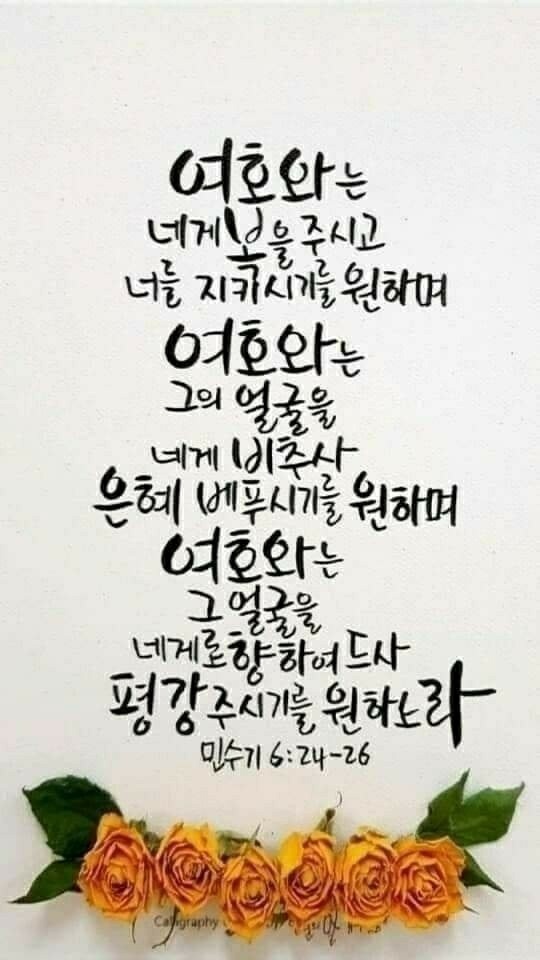 여호와는
네게 복을 주시고
너를 지키시기를 원하며
여호와는
그의 얼굴을
네게 비추사
은혜 베푸시기를 원하며
여호와는
그 얼굴을
네게로 향하여 드사
평강 주시기를 원하노라
민수기 6:24-26
Calligraphy